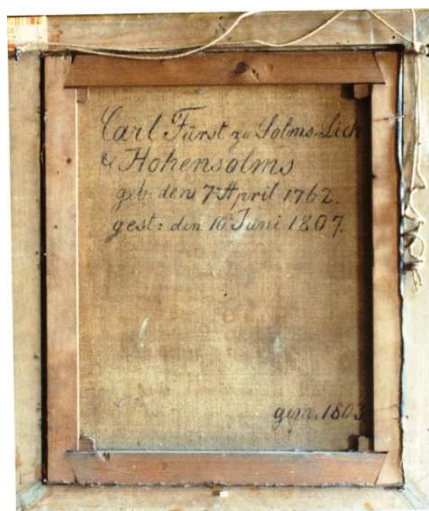 Carl Fürst zu Solms-Lich
& Hohensolms
geb: den 7. April 1762.
gest: den 10. Juni 1807.
gem. 1803